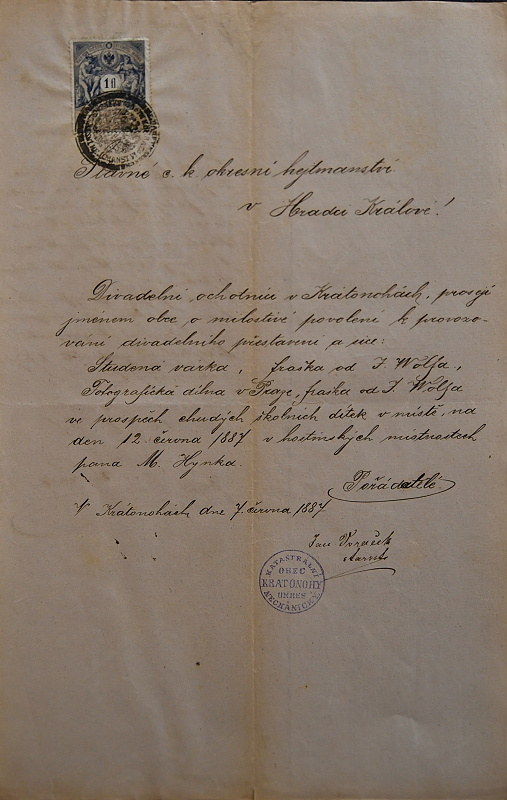 10
Slavné c. k. okresní hejtmanství
v Hradci Králové!
Divadelní ochotníci v Krátonohách, prosejí
jménem obce o milostivé povolení k provozo-
vání divadelního přestavení a sice:
Studená várka, fraška od J. Wolfa,
Fotografická dílna v Praze, fraška od J. Wolfa
ve prospěch chudých školních dítek v místě, na
den 12. června 1887 v hostinských místnostech
pana M. Hynka.
Pořádatelé
V Krátonohách, dne 7. června 1887
Jan
starosta
KATASTRÁLNÍ
OBEC
KRATONOHY
OKRES
NECHANICKÝ